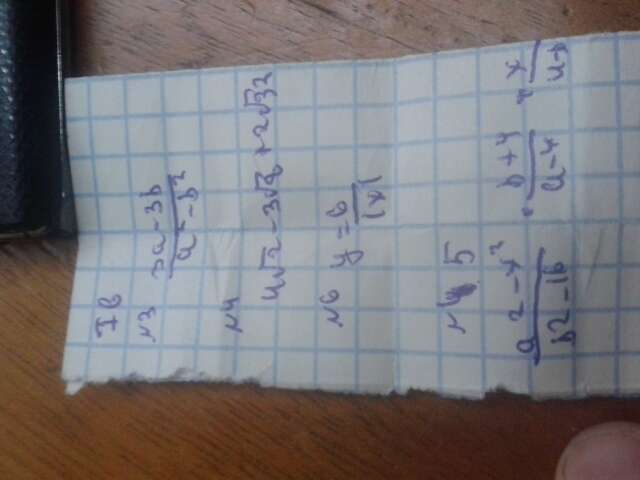 I в
№3 3a-3b / a²-b²
№4
4√2-3√8+2√32
№6 y=6/|x|
№5
a²-x² / b²-16 · b+4 / a-4